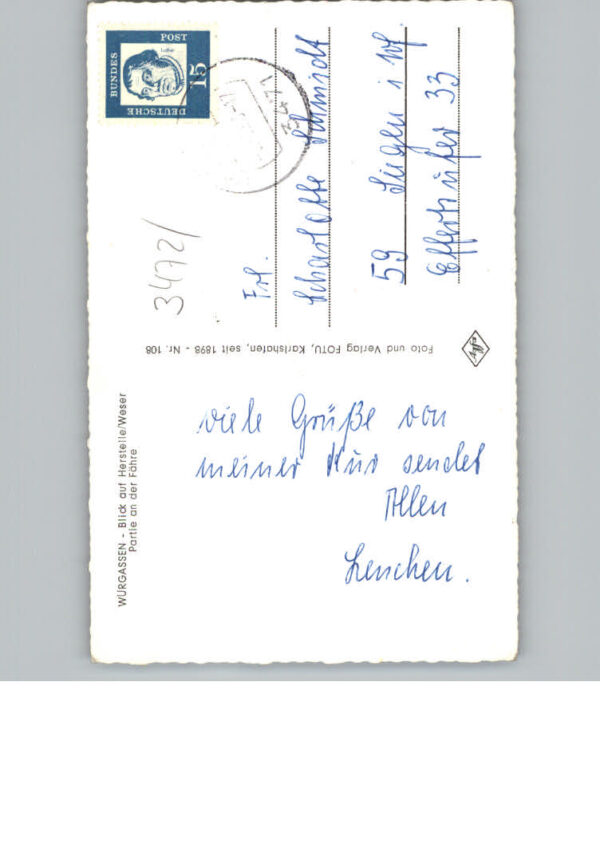 viele Grüße von
meiner Kur sendet
Allen
Lenchen.
Frl.
Scharlotte Schmidt
59 Siegen i. W.
Effertsufer 33
3472/
WÜRGASSEN - Blick auf Herstelle/Weser
Partie an der Fähre
Foto und Verlag FOTU, Karlshafen, seit 1898 - Nr. 108
DEUTSCHE
BUNDES
POST
Luther
15